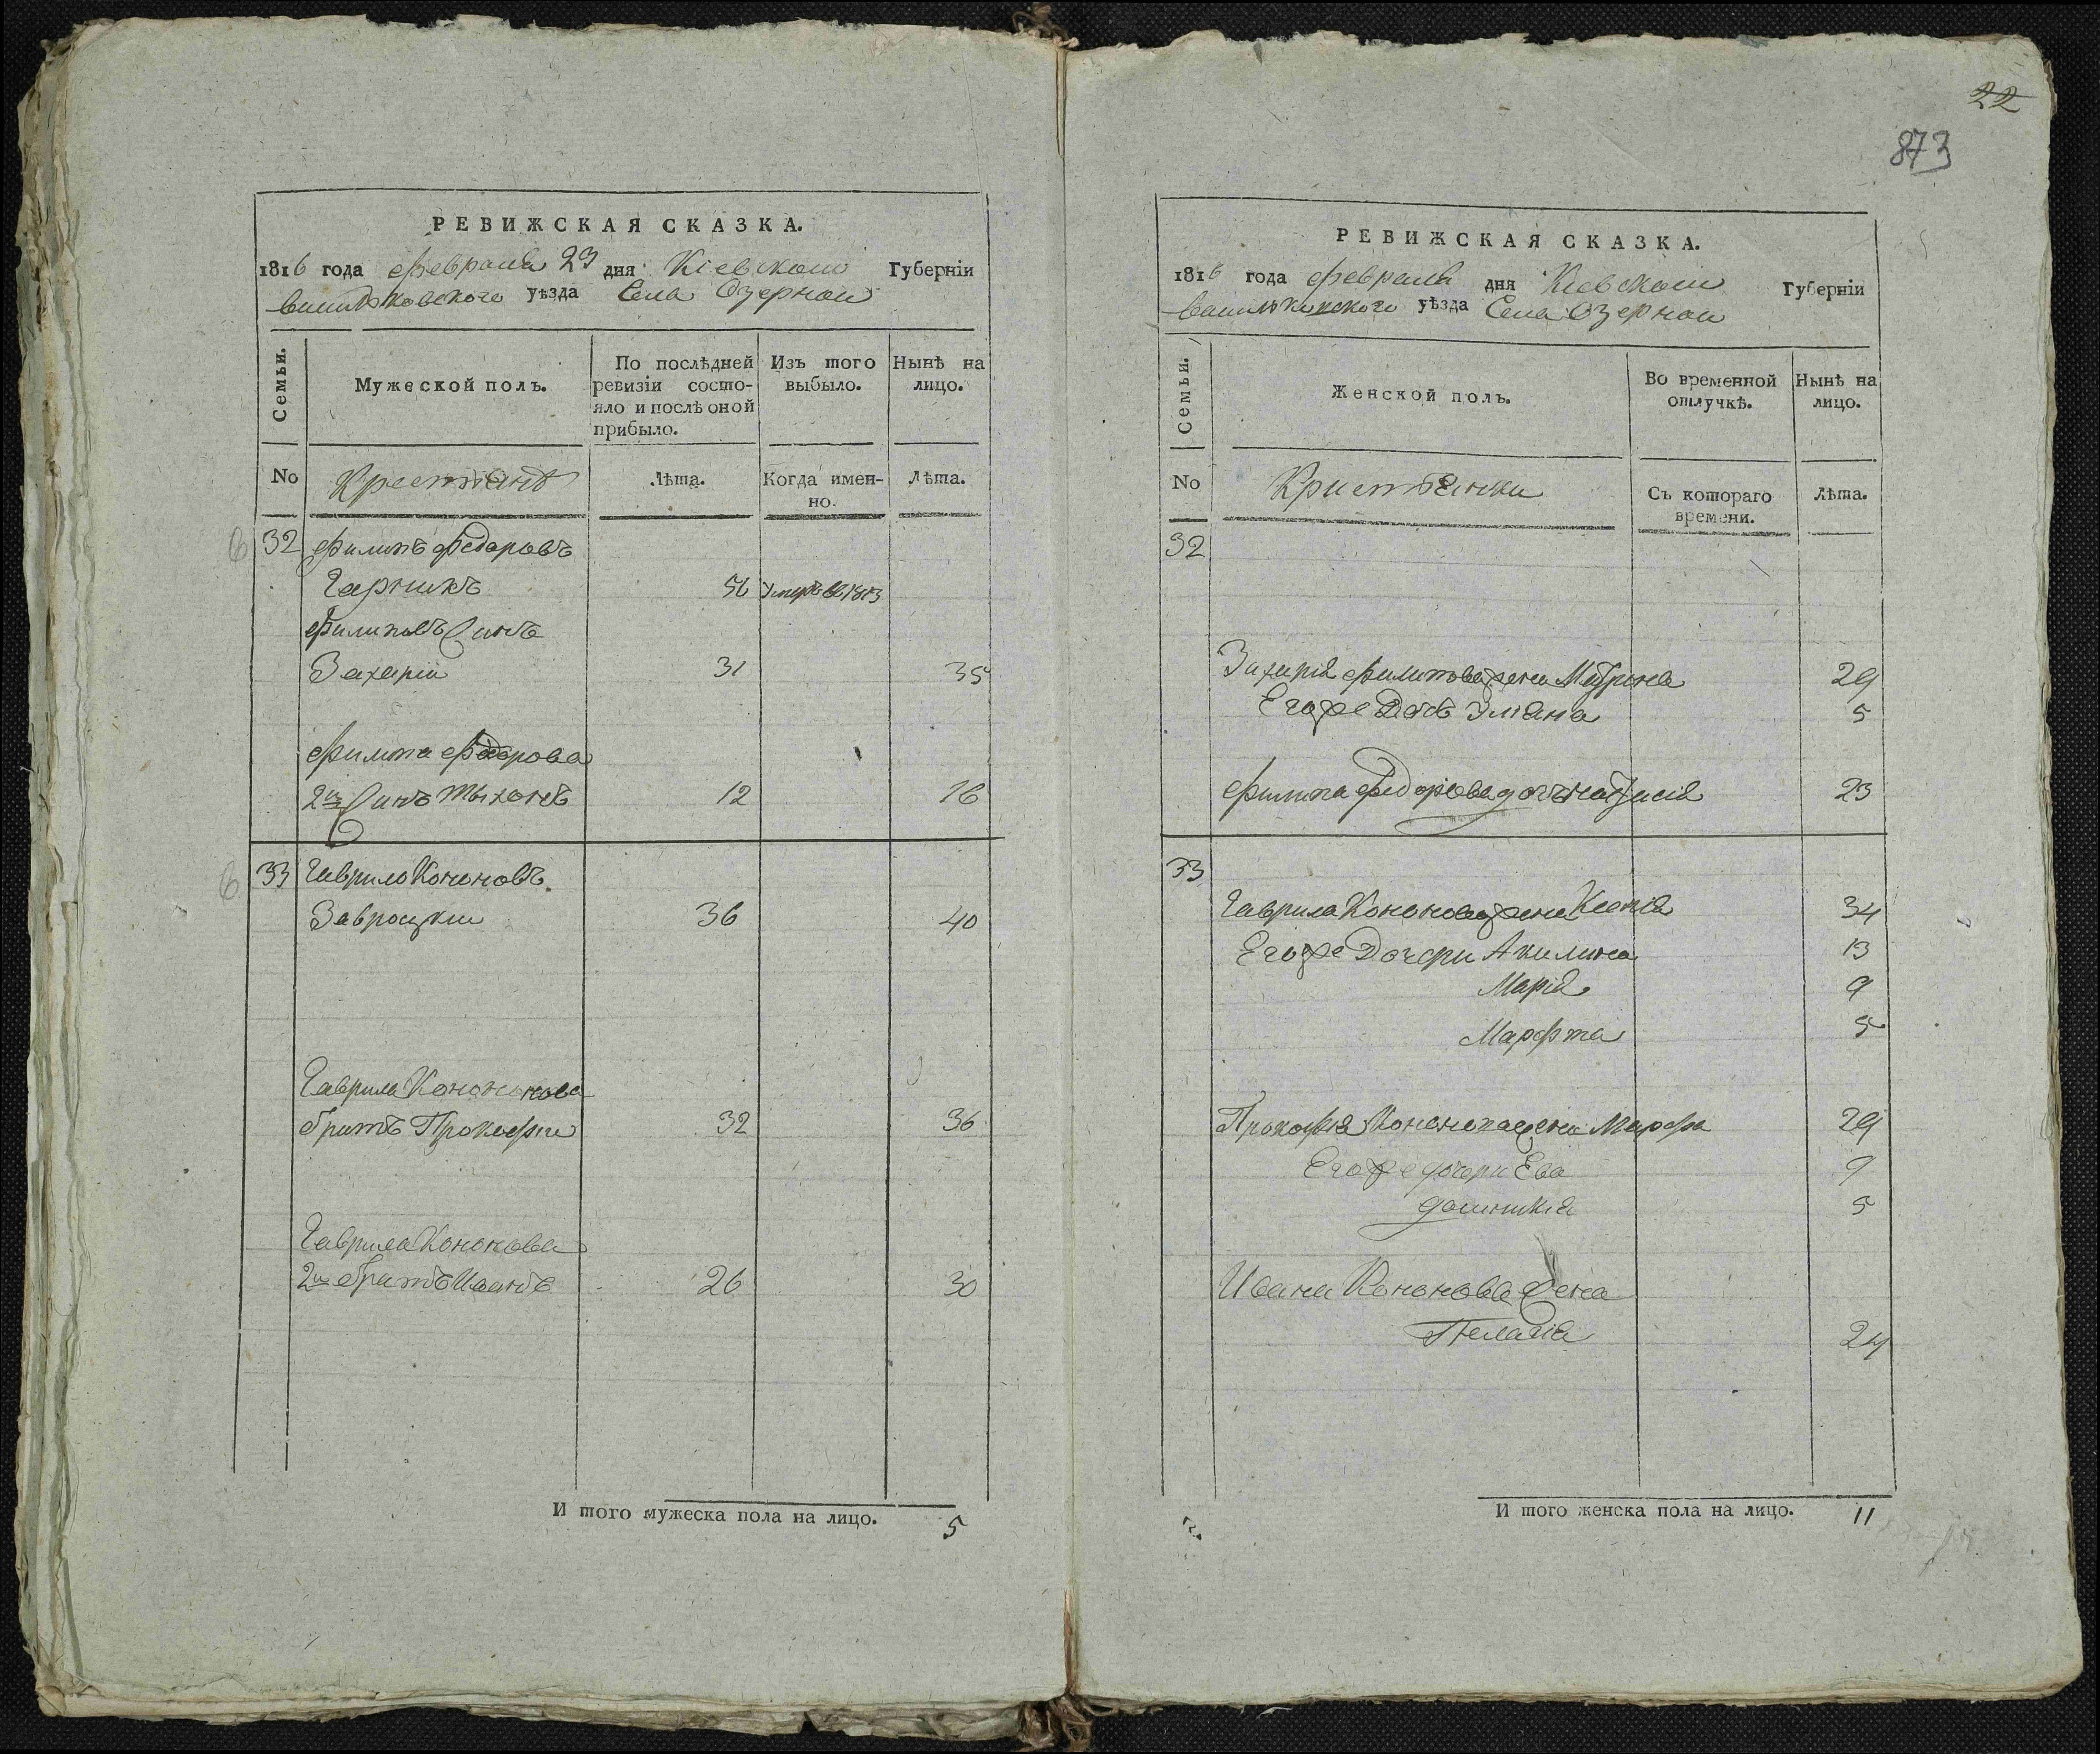 РЕВИЖСКАЯ СКАЗКА.
1816 года февраля 23 дня Кіевской Губерніи
Васильковского уѣзда Села Озерной
Семьи.
Мужеской полъ.
По послѣдней ревизіи состо-
яло и послѣ оной
прибыло.
Изъ того
выбыло.
Нынѣ на
лицо.
No
Крестянъ
Лѣта.
Когда имен-
но.
Лѣта.
32 Филипъ Федоровъ
Гарникъ 56 Умеръ в 1813
Филиповъ Синъ
Захарій 31 35
Филипа Федорова
2й Синъ Тихонъ 12 16
33 Гаврило Кононовъ
Завроцкий 36 40
Гаврила Кононова
братъ Прокофий 32 36
Гаврила Кононова
2й братъ Иванъ 26 30
И того мужеска пола на лицо. 5
22
873
РЕВИЖСКАЯ СКАЗКА.
1816 года февраля дня Кіевской Губерніи
Васильковского уѣзда Села Озерной
Семьи.
Женской полъ.
Во временной
отлучкѣ.
Нынѣ на
лицо.
No
Съ котораго
времени.
Лѣта.
32
Захарія Филипова жена Мотрона 29
Егоже Дочь Уліяна 5
Филипа Федорова дочь 23
33
Гаврила Кононова жена Ксенія 34
Егоже Дочери Акилина 13
Марія 9
Марфта 5
Прокофія Кононова жена Марфа 29
Егоже дочери Ева 9
5
Ивана Кононова жена
Пелагія 24
И того женска пола на лицо. 11